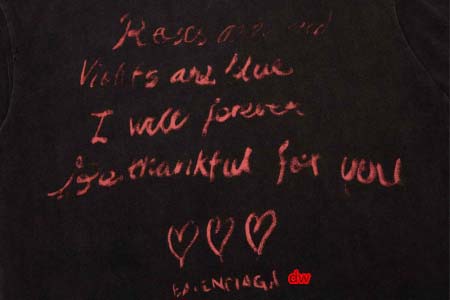 Roses are red
Violets are blue
I will forever
be thankful for you
BALENCIAGA dw